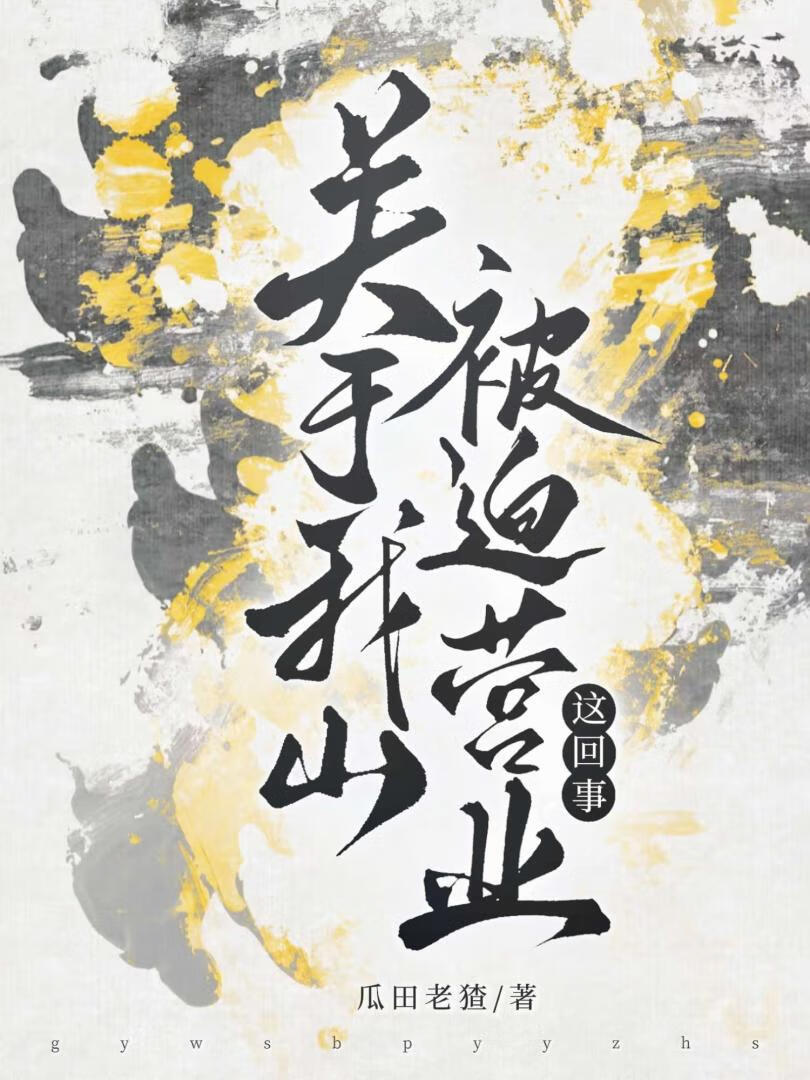 关于我山
被迫营业
这回事
瓜田老猹/著
g y w s b p y y z h s